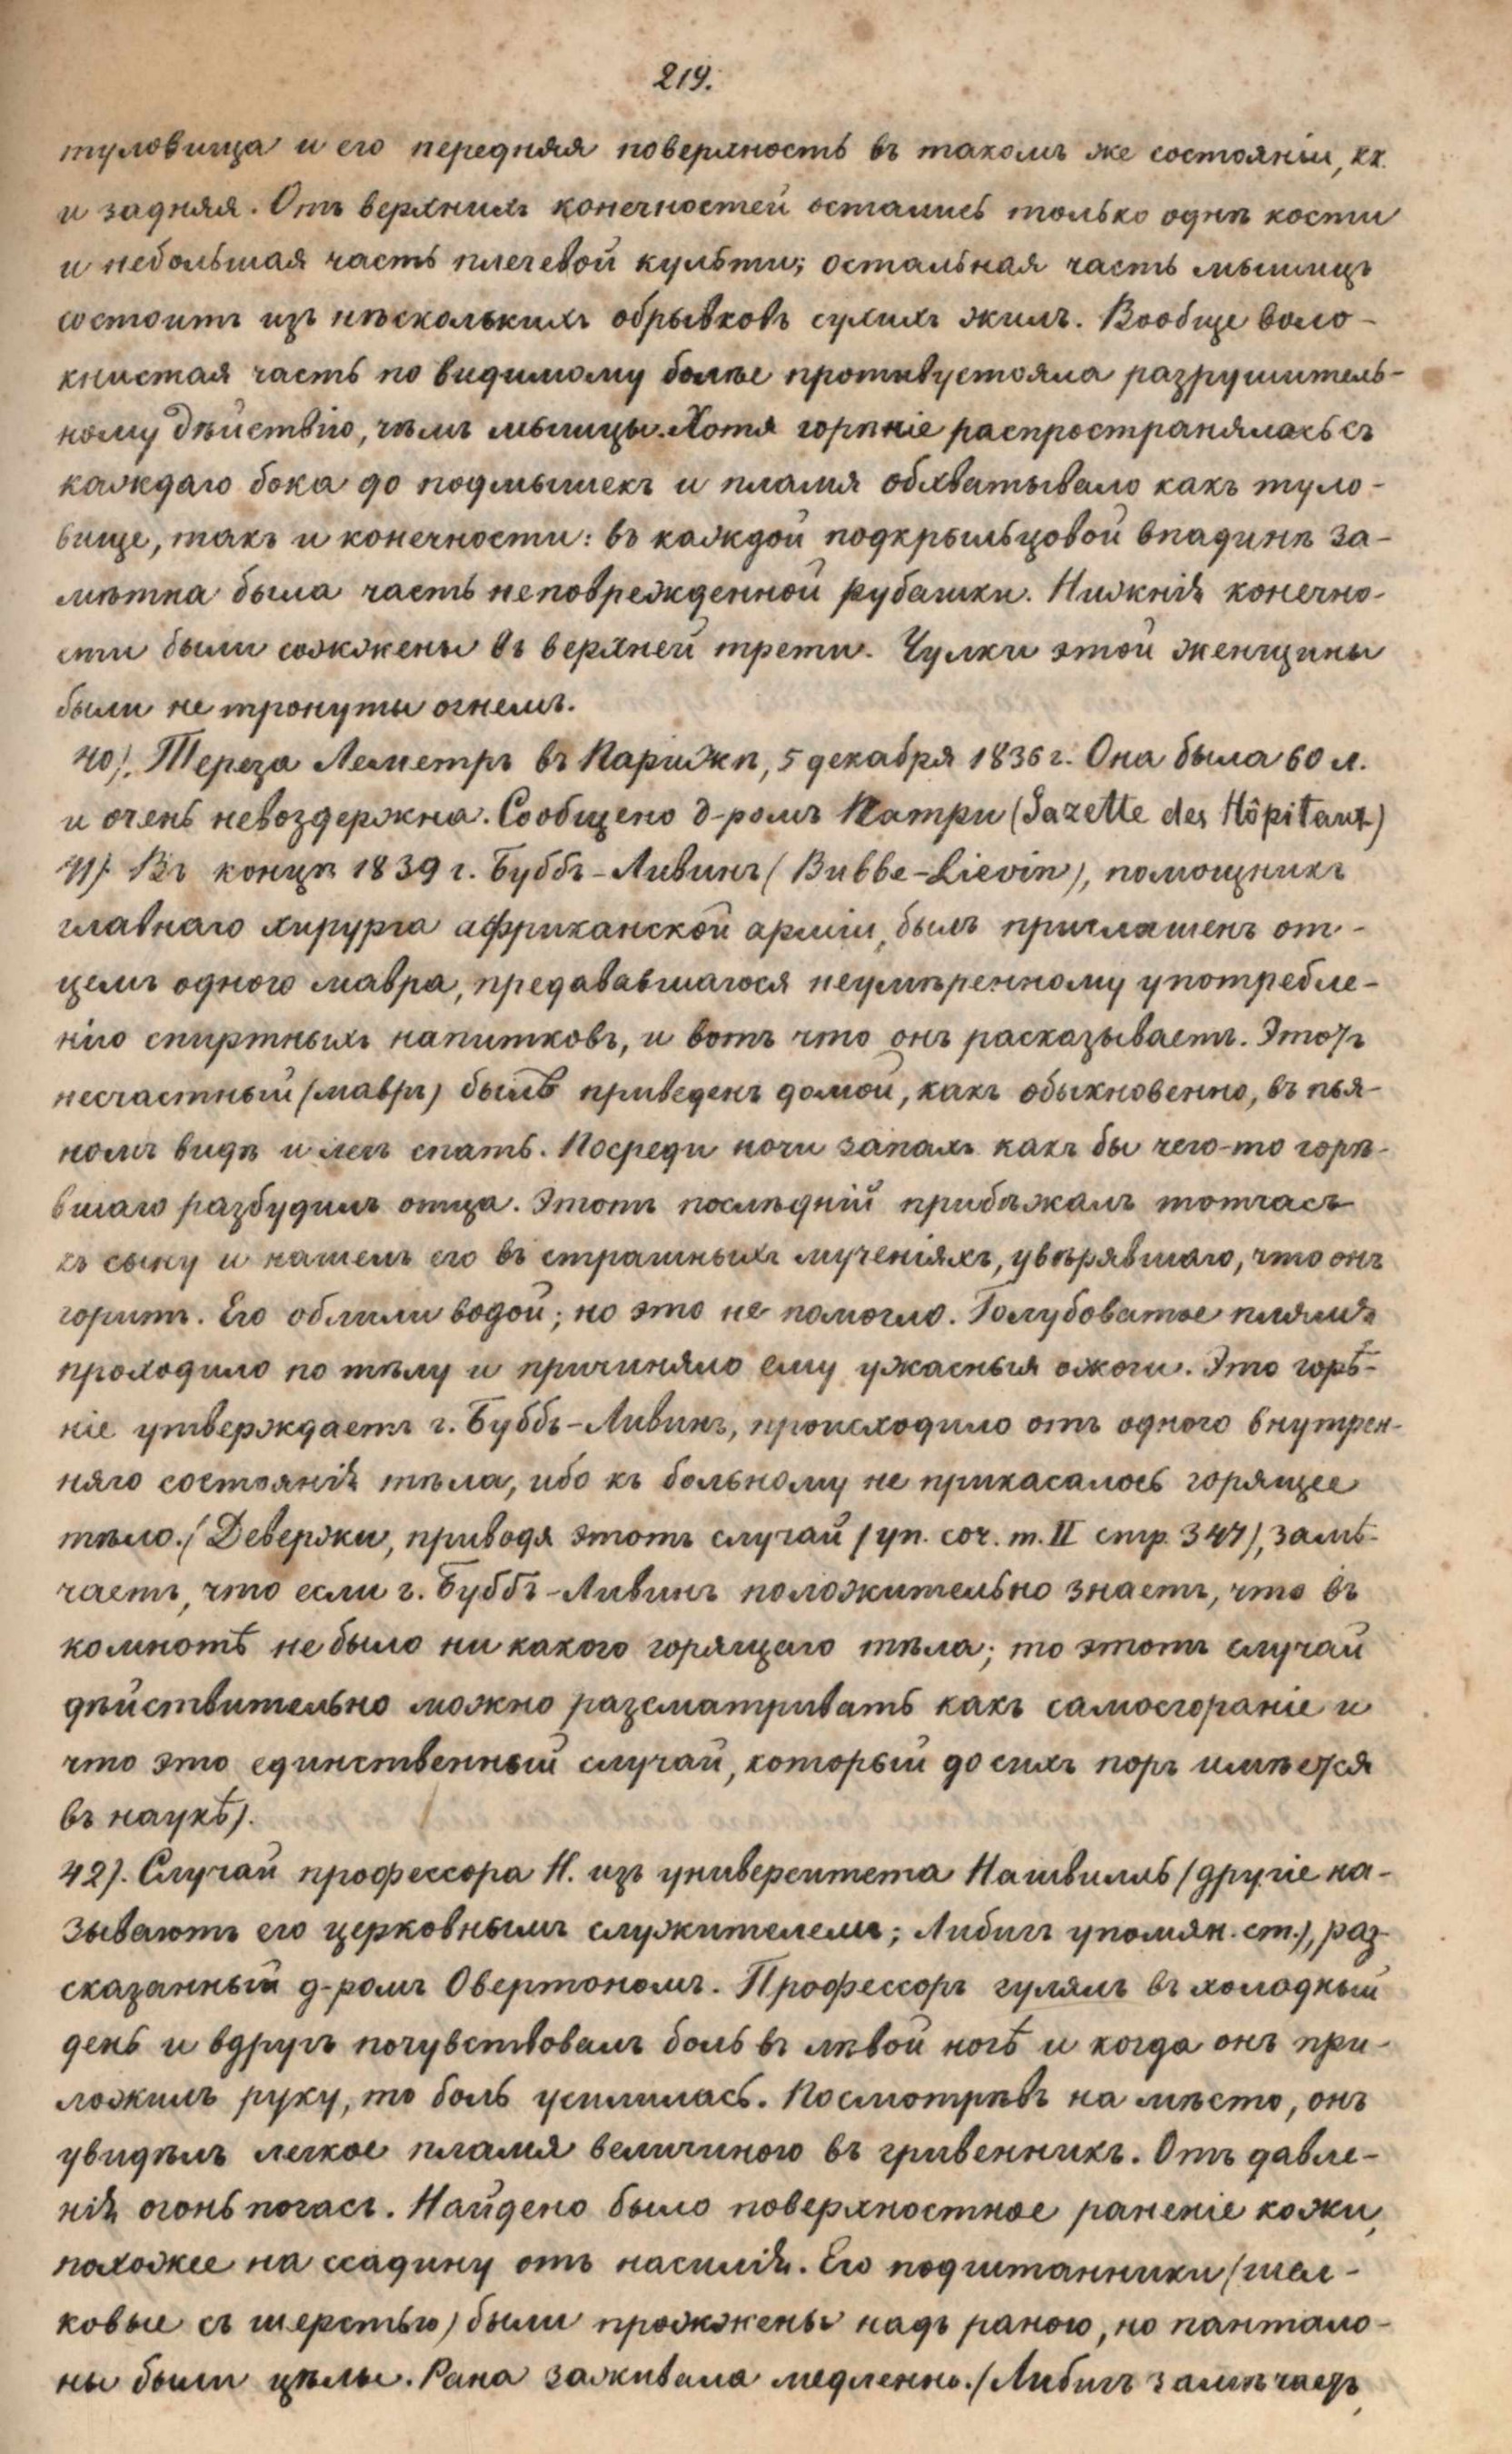 219.
туловища и его передняя поверхность въ такомъ же состояніи, кк.
и задняя. Отъ верхнихъ конечностей остались только однѣ кости
и небольшая часть плечевой культи; остальная часть мышицъ
состоитъ изъ нѣсколькихъ обрывковъ сухихъ жилъ. Вообще воло-
книстая часть по видимому болѣе противустояла разрушитель-
ному дѣйствію, чѣмъ мышцы. Хотя горѣніе распространялась съ
каждаго бока до подмышекъ и пламя обхватывало какъ туло-
вище, такъ и конечности: въ каждой подкрыльцовой впадинѣ за-
мѣтна была часть неповрежденной рубашки. Нижнія конечно-
сти были сожжены въ верхней трети. Чулки этой женщины
были не тронуты огнемъ.
40). Тереза Леметръ въ Парижѣ, 5 декабря 1836 г. Она была 60 л.
и очень невоздержна. Сообщено д-ромъ Патри (Gazette des Hôpitaux)
41). Въ концѣ 1839 г. Буббъ-Ливинъ (Bubbe-Lievin), помощникъ
главнаго хирурга африканской арміи, былъ приглашенъ от-
цемъ одного мавра, предававшагося неумѣренному употребле-
нію спиртныхъ напитковъ, и вотъ что онъ расказываетъ. Этотъ
несчастный (мавръ) былъ приведенъ домой, какъ обыкновенно, въ пья-
номъ видѣ и легъ спать. Посреди ночи запахъ какъ бы чего-то горѣ-
вшаго разбудилъ отца. Этотъ послѣдній прибѣжалъ тотчасъ
къ сыну и нашелъ его въ страшныхъ мученіяхъ, увѣрявшаго, что онъ
горитъ. Его облили водой; но это не помогло. Голубоватое пламя
проходило по тѣлу и причиняло ему ужасныя ожоги. Это горѣ-
ніе утверждаетъ г. Буббъ-Ливинъ, происходило отъ одного внутрен-
няго состоянія тѣла, ибо къ больному не прикасалось горящее
тѣло. (Девержи, приводя этотъ случай (уп. соч. т. II стр. 347), замѣ-
чаетъ, что если г. Буббъ-Ливинъ положительно знаетъ, что въ
комнотѣ не было ни какого горящаго тѣла; то этотъ случай
дѣйствительно можно разсматривать какъ самосгораніе и
что это единственный случай, который до сихъ поръ имѣется
въ наукѣ).
42). Случай профессора Н. изъ университета Нашвилль (другіе на-
зываютъ его церковнымъ служителемъ; Либигъ упомян. ст.), раз-
сказанный д-ромъ Овертономъ. Профессоръ гулялъ въ холодный
день и вдругъ почувствовалъ боль въ лѣвой ногѣ и когда онъ при-
ложилъ руку, то боль усилилась. Посмотрѣвъ на мѣсто, онъ
увидѣлъ легкое пламя величиною въ гривенникъ. Отъ давле-
нія огонь погасъ. Найдено было поверхностное раненіе кожи,
похожее на ссадину отъ насилія. Его подштанники (шел-
ковые съ шерстью) были прожжены надъ раною, но пантало-
ны были цѣлы. Рана заживала медленно. (Либигъ замѣчаетъ,